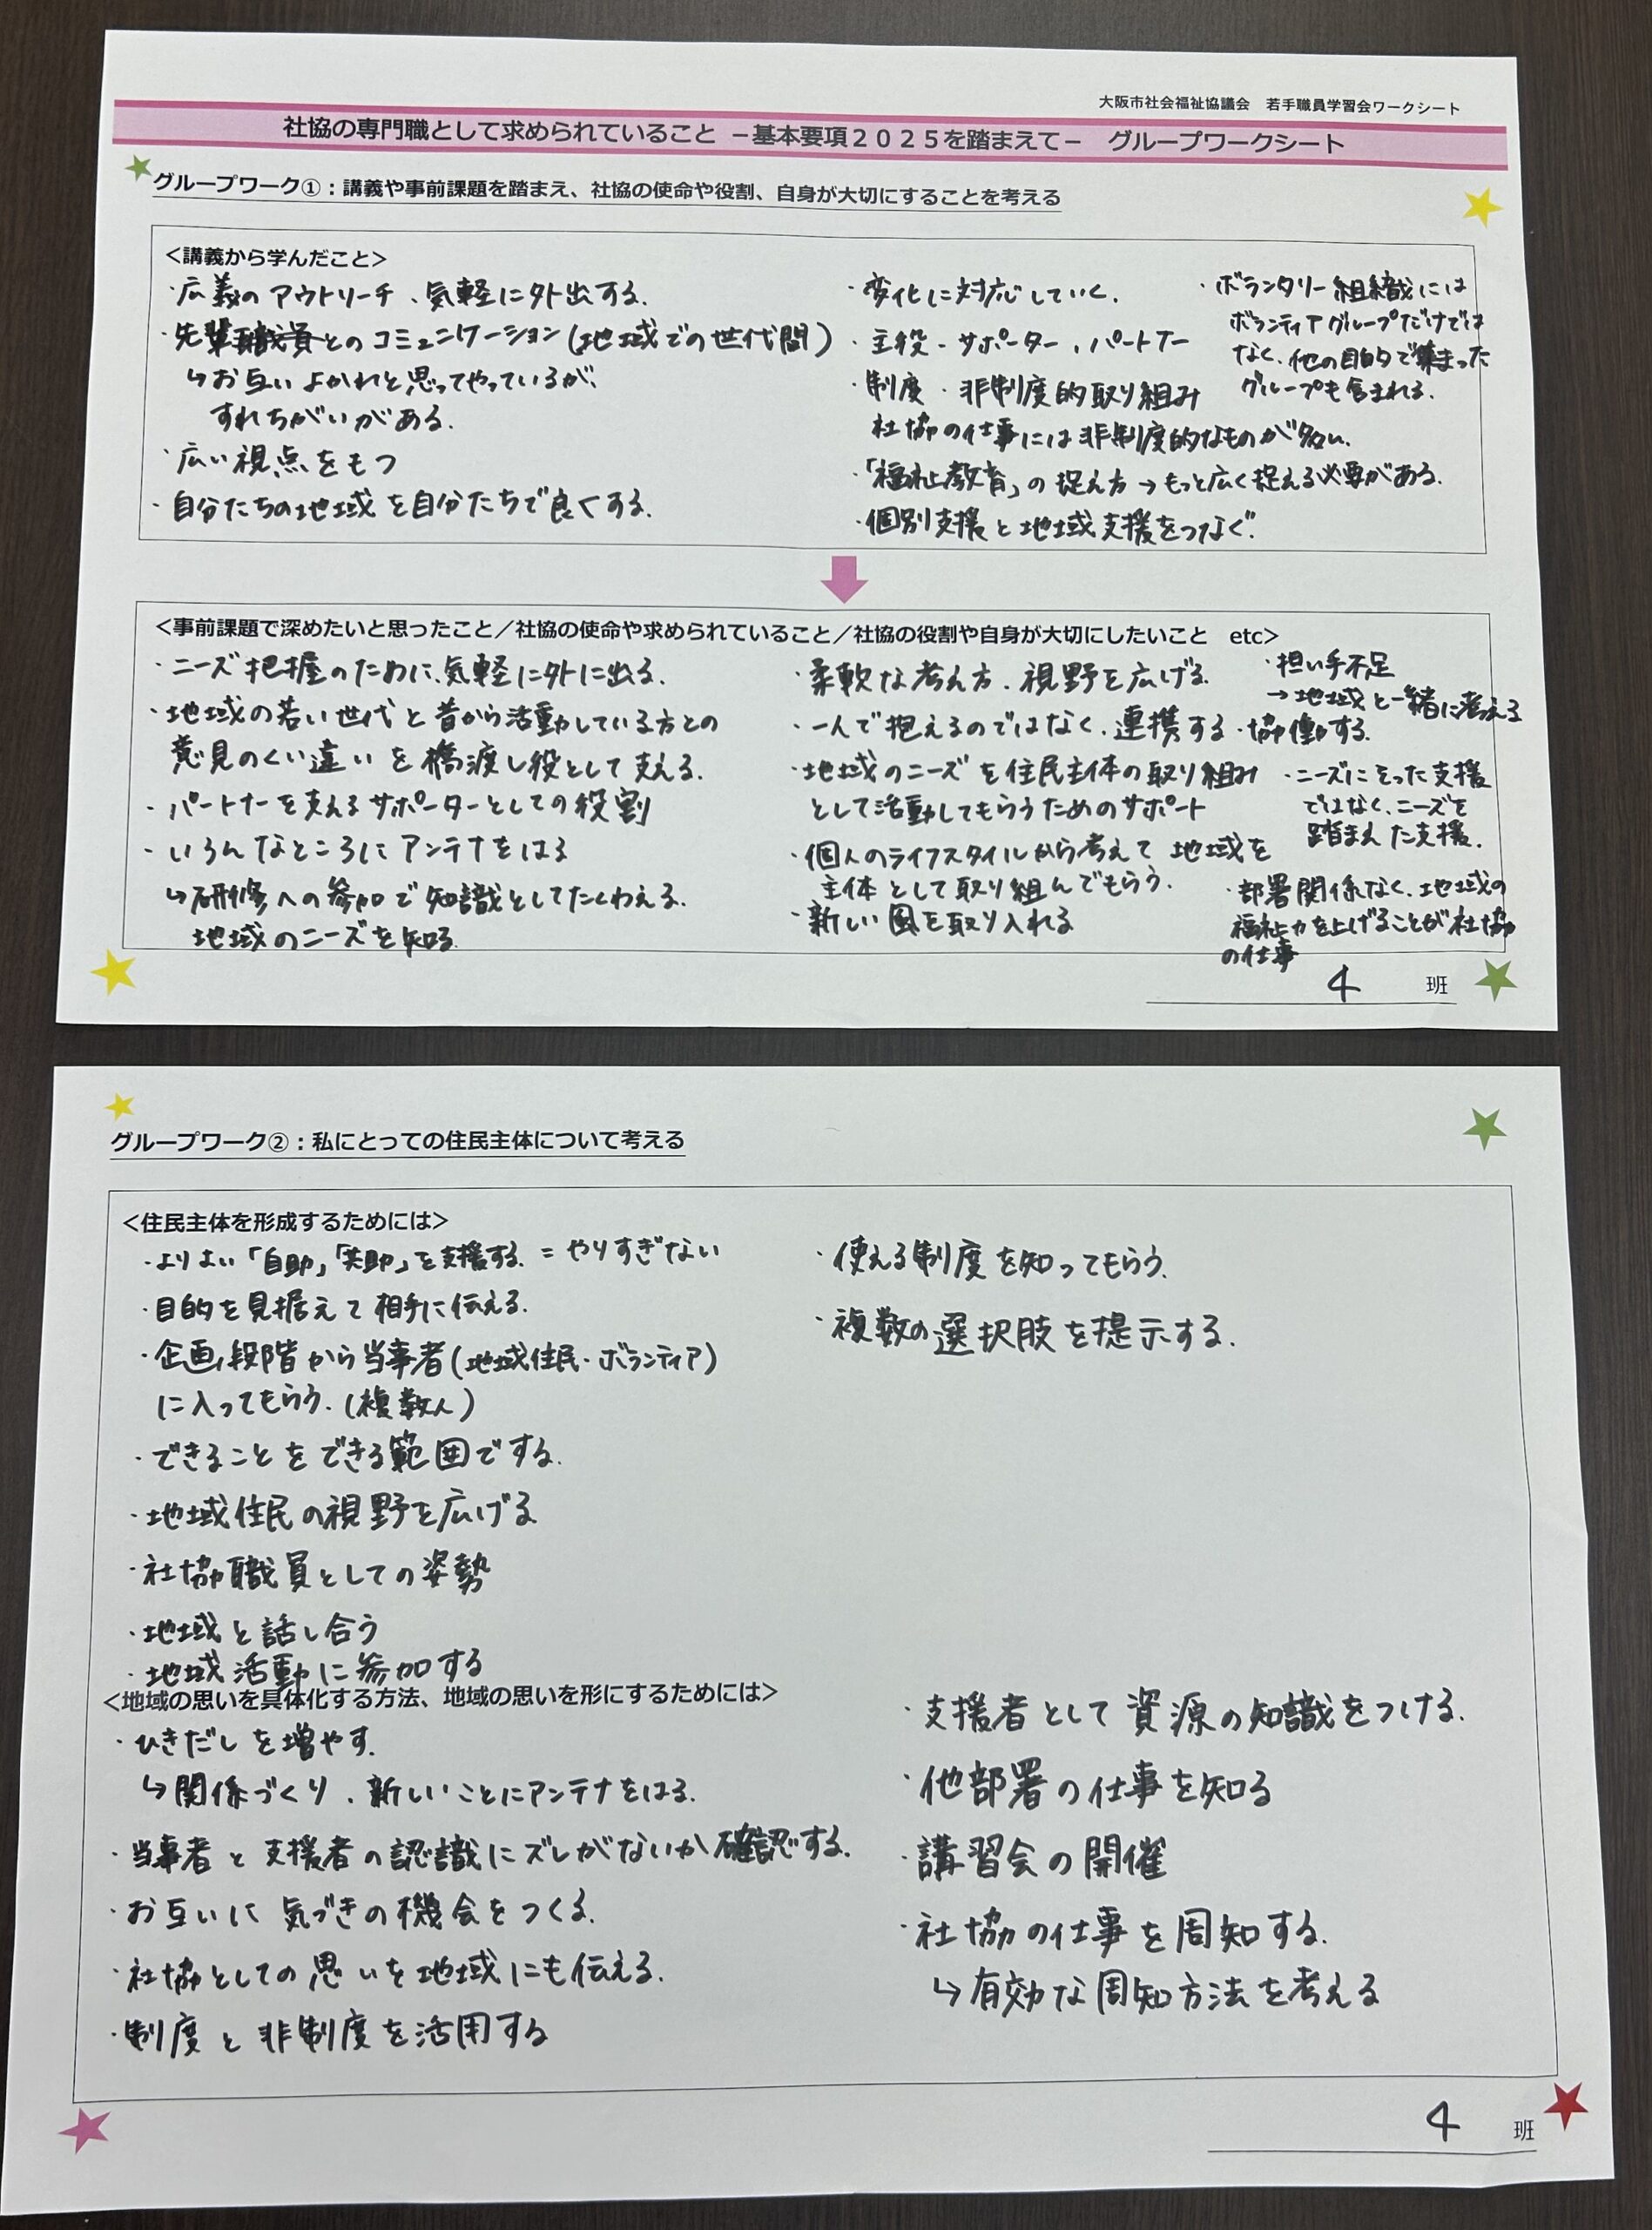 大阪市社会福祉協議会　若手職員学習会ワークシート
社協の専門職として求められていること －基本要項２０２５を踏まえて－　グループワークシート
グループワーク①：講義や事前課題を踏まえ、社協の使命や役割、自身が大切にすることを考える
＜講義から学んだこと＞
・広義のアウトリーチ、気軽に外出する。
・先輩職員とのコミュニケーション(地域での世代間)
↳お互いよかれと思ってやっているが、
すれちがいがある。
・広い視点をもつ
・自分たちの地域を自分たちで良くする。
・変化に対応していく。
・主役・サポーター、パートナー
・制度・非制度的取り組み
社協の仕事には非制度的なものが多い。
・「福祉教育」の捉え方→もっと広く捉える必要がある。
・個別支援と地域支援をつなぐ。
・ボランタリー組織には
ボランティアグループだけでは
なく、他の目的で集まった
グループも含まれる。
＜事前課題で深めたいと思ったこと／社協の使命や求められていること／社協の役割や自身が大切にしたいこと　etc＞
・ニーズ把握のために、気軽に外に出る。
・地域の若い世代と昔から活動している方との
意見のくい違いを橋渡し役として支える。
・パートナーを支えるサポーターとしての役割
・いろんなところにアンテナをはる
↳研修への参加で知識としてたくわえる。
地域のニーズを知る。
・柔軟な考え方、視野を広げる
・一人で抱えるのではなく、連携する・協働する。
・地域のニーズを住民主体の取り組み
として活動してもらうためのサポート
・個人のライフスタイルから考えて地域を
主体として取り組んでもらう。
・新しい風を取り入れる
・担い手不足
→地域と一緒に考える
・ニーズにそった支援
ではなく、ニーズを
踏まえた支援。
・部署関係なく、地域の
福祉力を上げることが社協
の仕事
4 班
グループワーク②：私にとっての住民主体について考える
＜住民主体を形成するためには＞
・よりよい「自助」「共助」を支援する。＝やりすぎない
・目的を見据えて相手に伝える。
・企画段階から当事者(地域住民・ボランティア)
に入ってもらう。(複数人)
・できることをできる範囲でする。
・地域住民の視野を広げる
・社協職員としての姿勢
・地域と話し合う
・地域活動に参加する
・使える制度を知ってもらう。
・複数の選択肢を提示する。
＜地域の思いを具体化する方法、地域の思いを形にするためには＞
・ひきだしを増やす。
↳関係づくり、新しいことにアンテナをはる。
・当事者と支援者の認識にズレがないか確認する。
・お互いに気づきの機会をつくる。
・社協としての思いを地域にも伝える。
・制度と非制度を活用する
・支援者として資源の知識をつける。
・他部署の仕事を知る
・講習会の開催
・社協の仕事を周知する。
↳有効な周知方法を考える
4 班